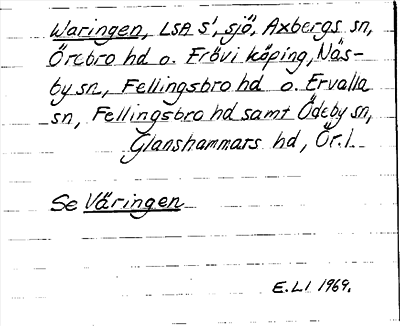 Waringen, LSA S', sjö, Axbergs sn,
Örebro hd o. Frövi köping, Näs-
by sn, Fellingsbro hd o. Ervalla
sn, Fellingsbro hd samt Ödeby sn,
Glanshammars hd, Ör. l.
Se Väringen
E.LI 1969.